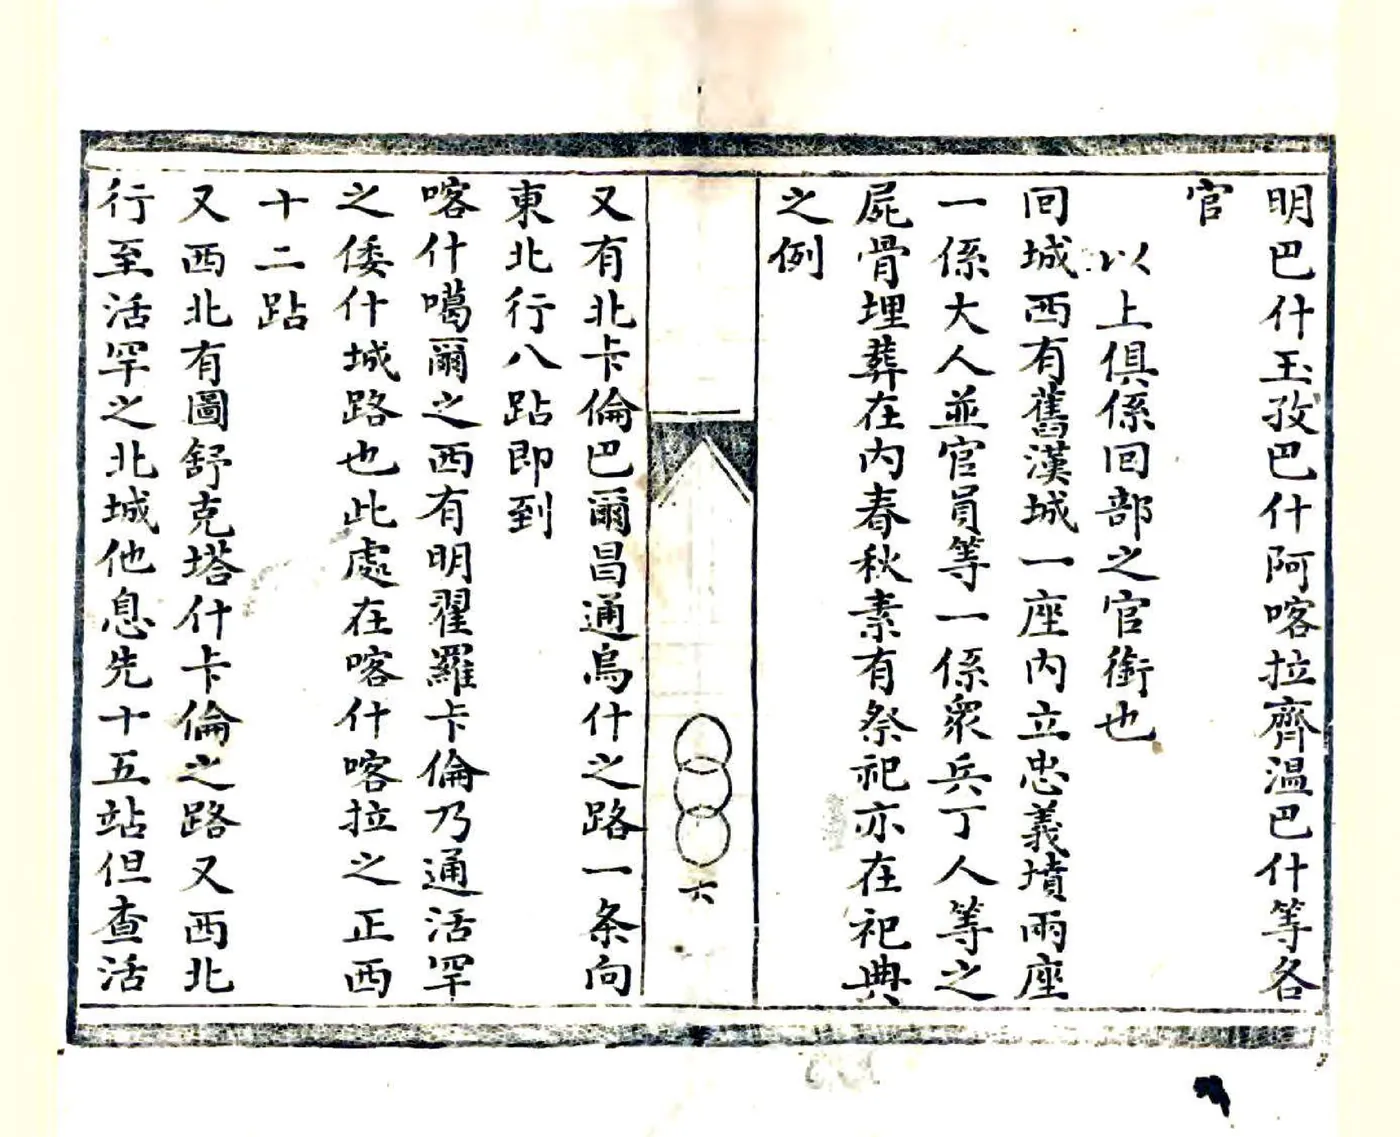 明巴什玉孜巴什阿喀拉齊温巴什等各
官
以上俱係回部之官銜也
回城西有舊漢城一座内立忠義墳兩座
一係大人並官員等一係衆兵丁人等之
屍骨埋葬在内春秋素有祭祀亦在祀典
之例
六
又有北卡倫巴爾昌通烏什之路一条向
東北行八跕即到
喀什噶爾之西有明翟羅卡倫乃通活罕
之倭什城路也此處在喀什喀拉之正西
十二跕
又西北有圖舒克塔什卡倫之路又西北
行至活罕之北城他息先十五站但查活